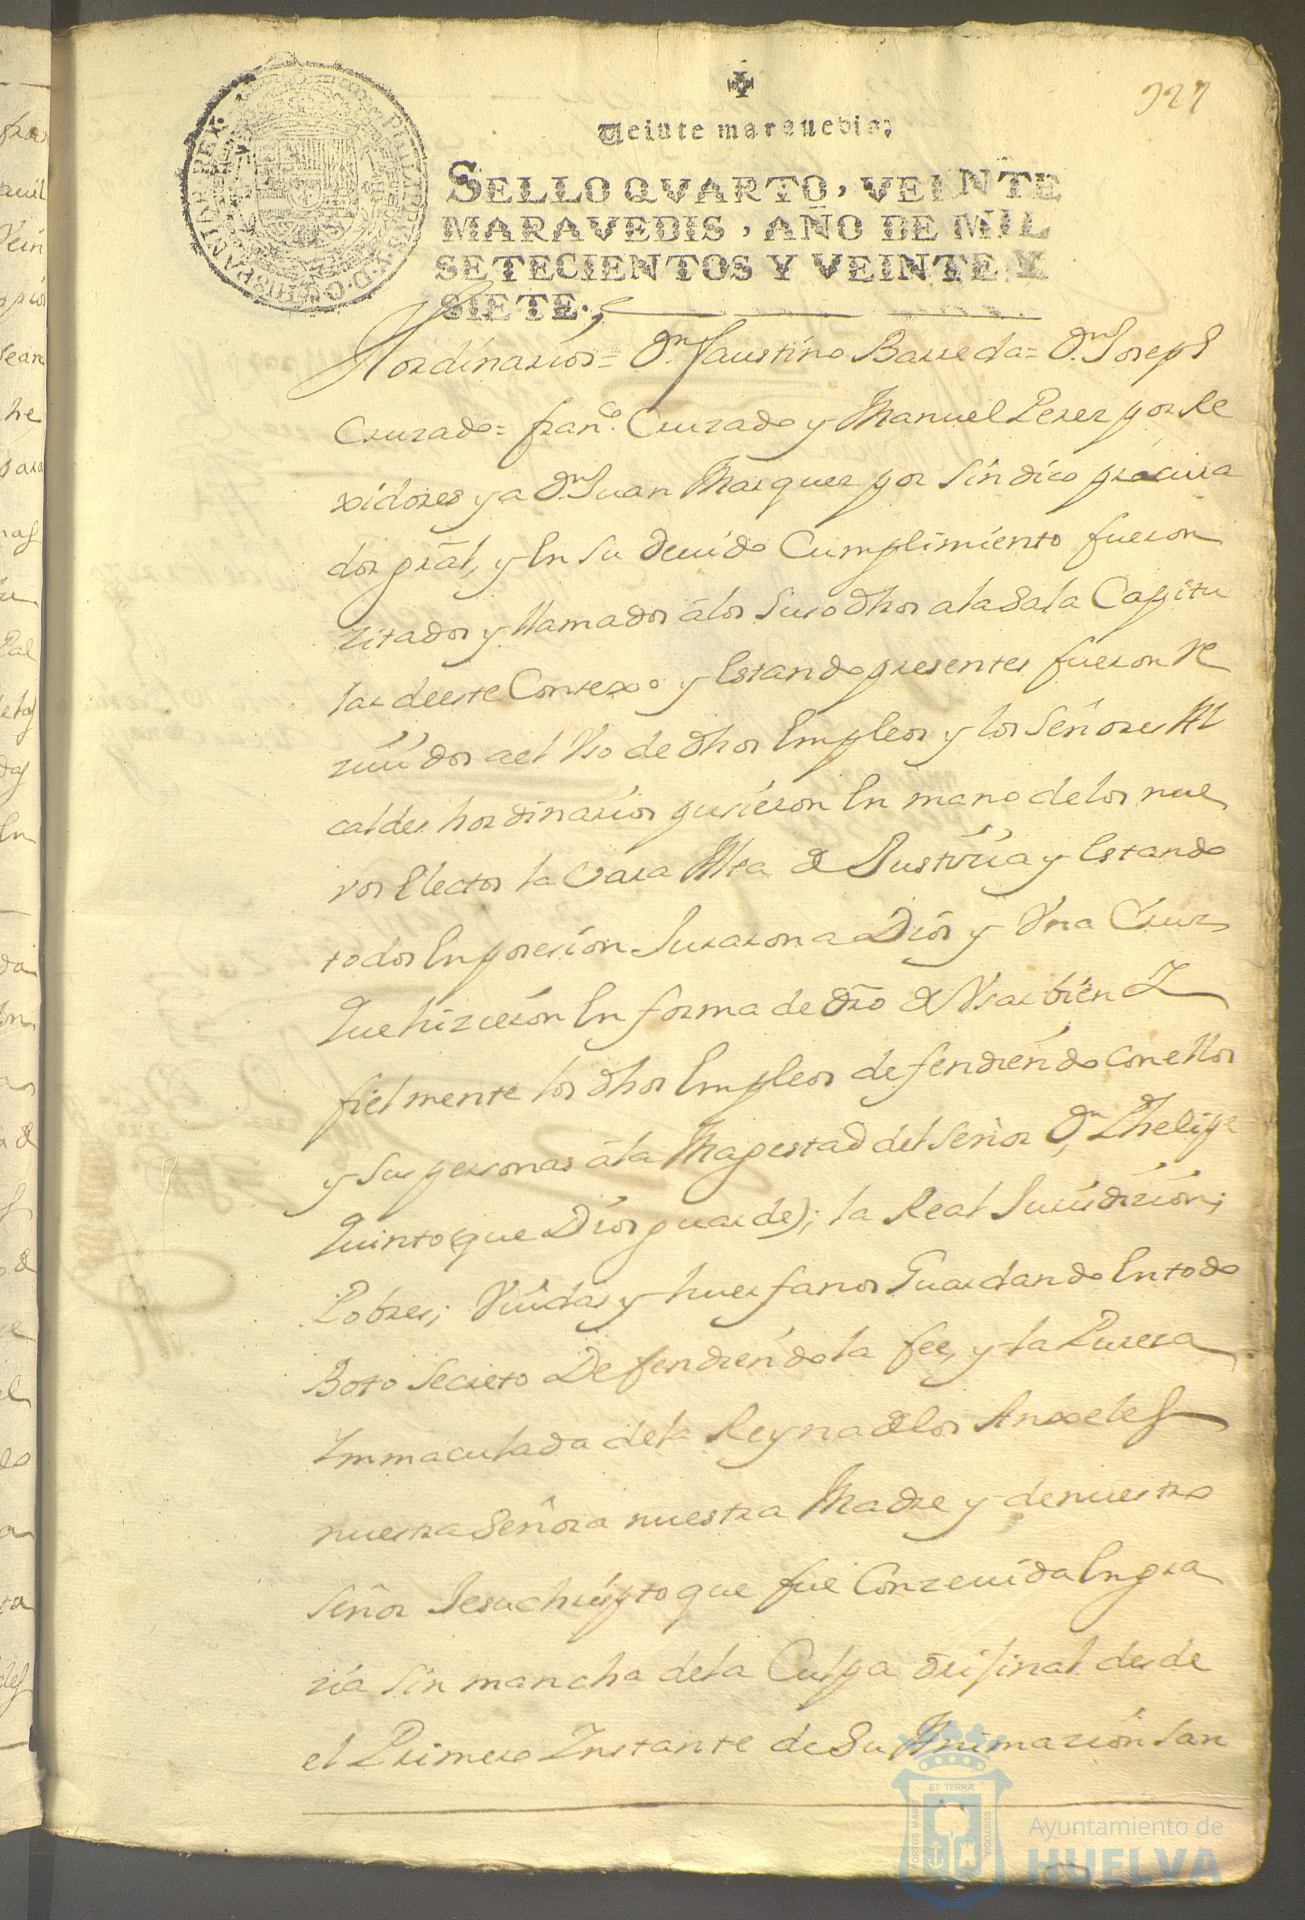 327
Veinte marauedis;
SELLO QVARTO, VEINTE
MARAVEDIS, AÑO DE MIL
SETECIENTOS Y VEINTE Y
SIETE.
PHILIPPUS V. D. G. HISPANIAR. REX.
Hordinarios= Dn. faustino Barreda= Dn. Joseph
Cruzado= franco. Cruzado y Manuel Perez por Re
xidores y a Dn. Juan Marquez por sindico procura
dor gral, y En su deuido Cumplimiento fueron
zitados y llamados â los susodhos a la Sala Capitu
lar de este Conzexo y Estando presentes fueron re
ziuidos ael Vso de dhos Empleos y los Señores Al
caldes hordinarios pusieron En mano de los nue
vos Electos la Vara Alta de Justizia y Estando
todos En posesion Juraron a Dios y Vna Cruz
que hizieron En forma de dro de Vsar bien Y
fielmente los dhos Empleos defendiendo con ellos
y sus personas â la Magestad del Señor Dn. Phelipe
quinto (que Dios guarde); la Real Jurisdizion;
Pobres; Viudas y huerfanos Guardando En todo
Boto Secreto Defendiendo la fee, y la Pureza
Ymmaculada de la Reyna de los Anxeles
nuestra Señora nuestra Madre y de nuestro
Señor Jesuchripto que fue Conzeuida En gra
zia sin mancha de la Culpa orijinal desde
el Primero Ynstante de Su Animazion San
ET TERRÆ
PORTUS MARIS
CUSTODIA
Ayuntamiento de
HUELVA